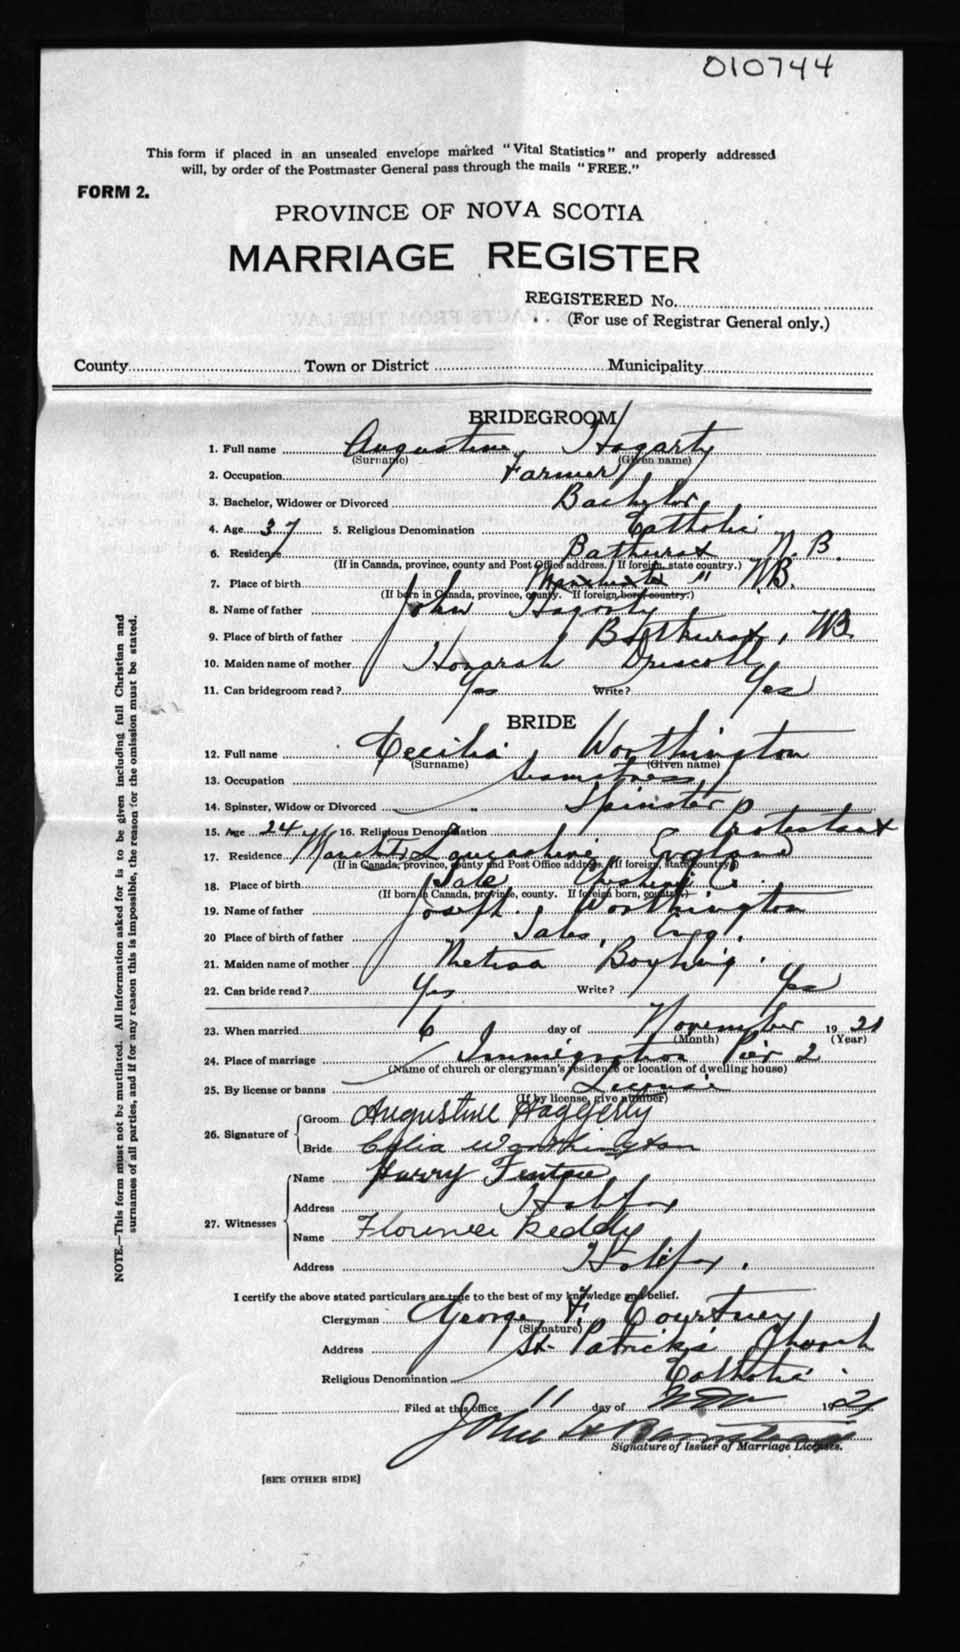 010744
This form if placed in an unsealed envelope marked "Vital Statistics" and properly addressed
will, by order of the Postmaster General pass through the mails "FREE."
FORM 2.
PROVINCE OF NOVA SCOTIA
MARRIAGE REGISTER
REGISTERED No.
(For use of Registrar General only.)
County Town or District Municipality
BRIDEGROOM
1. Full name Augustine Hogarty
(Surname) (Given name)
2. Occupation Farmer
3. Bachelor, Widower or Divorced Bachelor
4. Age 37 5. Religious Denomination Catholic
6. Residence Bathurst N.B.
(If in Canada, province, county and Post Office address. If foreign, state country.)
7. Place of birth " N.B.
(If born in Canada, province, county. If foreign born, country.)
8. Name of father John Hagarty
9. Place of birth of father Bathurst, N.B.
10. Maiden name of mother Honorah Driscoll
11. Can bridegroom read? Yes Write? Yes
BRIDE
12. Full name Cecilia Worthington
(Surname) (Given name)
13. Occupation Seamstress
14. Spinster, Widow or Divorced Spinster
15. Age 24 16. Religious Denomination Protestant
17. Residence Lancashire England
(If in Canada, province, county and Post Office address. If foreign, state country.)
18. Place of birth Sale
(If born in Canada, province, county. If foreign born, country.)
19. Name of father Joseph Worthington
20 Place of birth of father Sale, Eng.
21. Maiden name of mother
22. Can bride read? Yes Write? Yes
23. When married 6 day of November 1921
(Month) (Year)
24. Place of marriage Immigration Pier 2
(Name of church or clergyman's residence or location of dwelling house)
25. By license or banns License
(If by license, give number)
26. Signature of Groom Augustine Haggerty
Bride Celia Worthington
27. Witnesses Name Harry Fenton
Address Halifax
Name Florence Reddy
Address Halifax.
I certify the above stated particulars are true to the best of my knowledge and belief.
Clergyman George F. Courtney
(Signature)
Address St Patrick's Church
Religious Denomination Catholic
Filed at this office 11 day of Nov 1921
John H
Signature of Issuer of Marriage Licenses.
[SEE OTHER SIDE]
NOTE.—This form must not be mutilated. All information asked for is to be given including full Christian and
surnames of all parties, and if for any reason this is impossible, the reason for the omission must be stated.